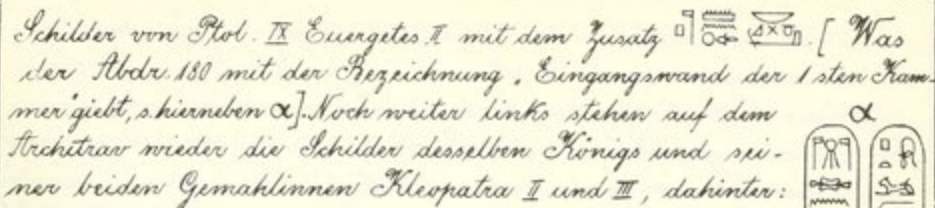 Schilder von Ptol. IX Euergetes II mit dem Zusatz . [ Was
der Abdr. 180 mit der Bezeichnung „Eingangswand der 1sten Kam-
mer" giebt, s. hierneben α]. Noch weiter links stehen auf dem
α
Architrav wieder die Schilder desselben Königs und sei-
ner beiden Gemahlinnen Kleopatra II und III, dahinter: